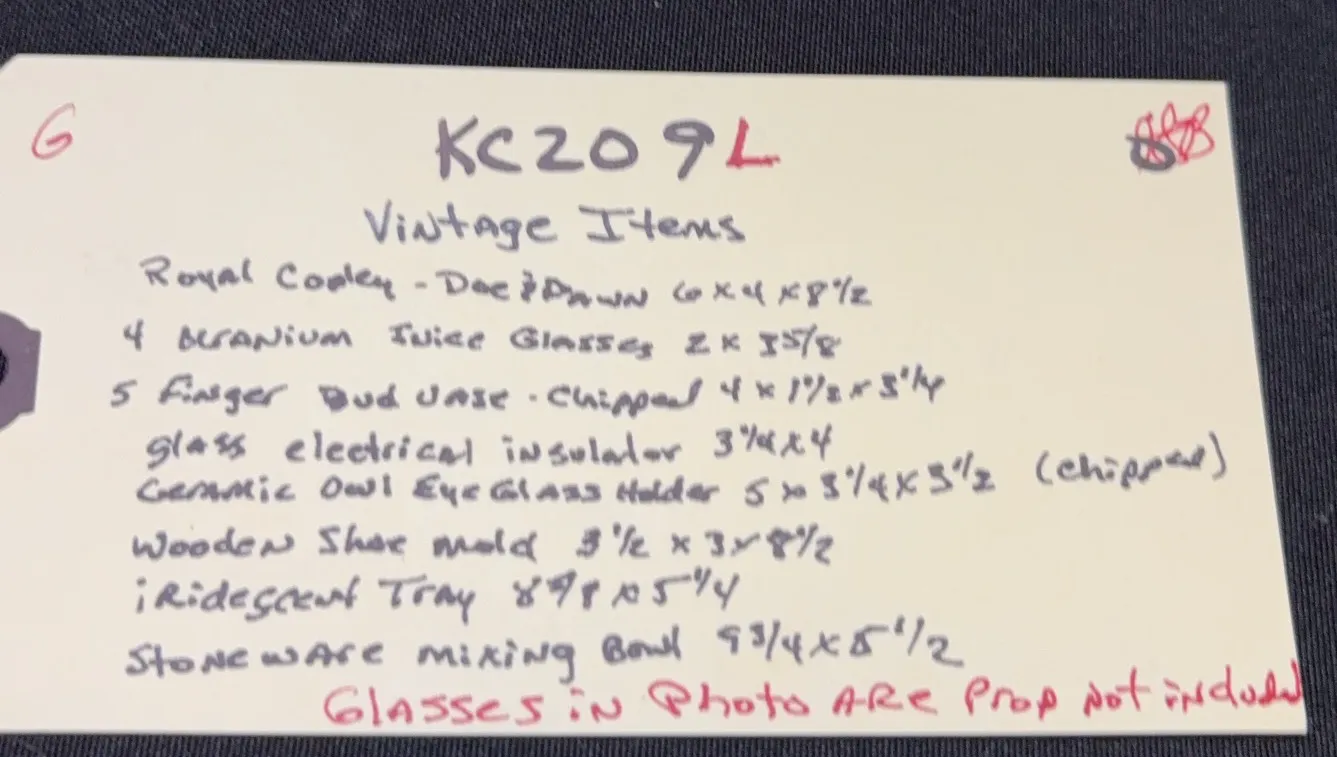 G
KC209L
Vintage Items
Royal Copley - Doe & Dawn 6 x 4 x 8 1/2
4 Juice Glasses 2 x 3 5/8
5 finger Bud Vase - Chipped 4 x 1 1/2 x 3 1/4
glass electrical insulator 3 1/4 x 4
Ceramic Owl Eye Glass Holder 5 x 3 1/4 x 3 1/2 (chipped)
Wooden Shoe mold 3 1/2 x 3 x 8 1/2
iRidescent Tray x 5 1/4
Stoneware mixing Bowl 9 3/4 x 5 1/2
Glasses in Photo ARE Prop Not included